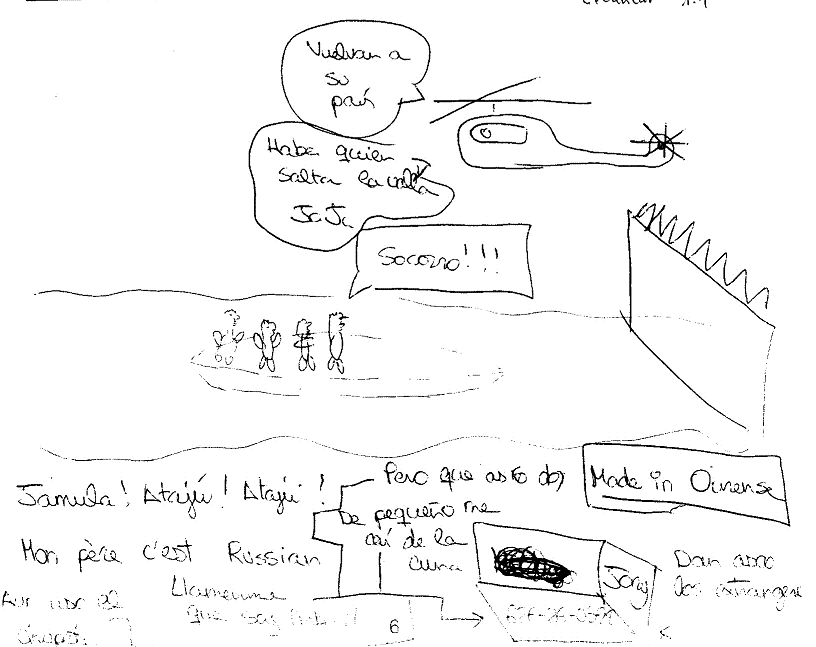 Vuelvan a
su
país
Haber quien
salta la valla
JaJa
Socorro!!!
Jámula! Atajú! Atajú!
Pero que asco doy
Made in Ourense
De pequeño me
caí de la
cuna
Mon père c'est Russian
Dan asco
los
Jony
Llamenme
que soy
6